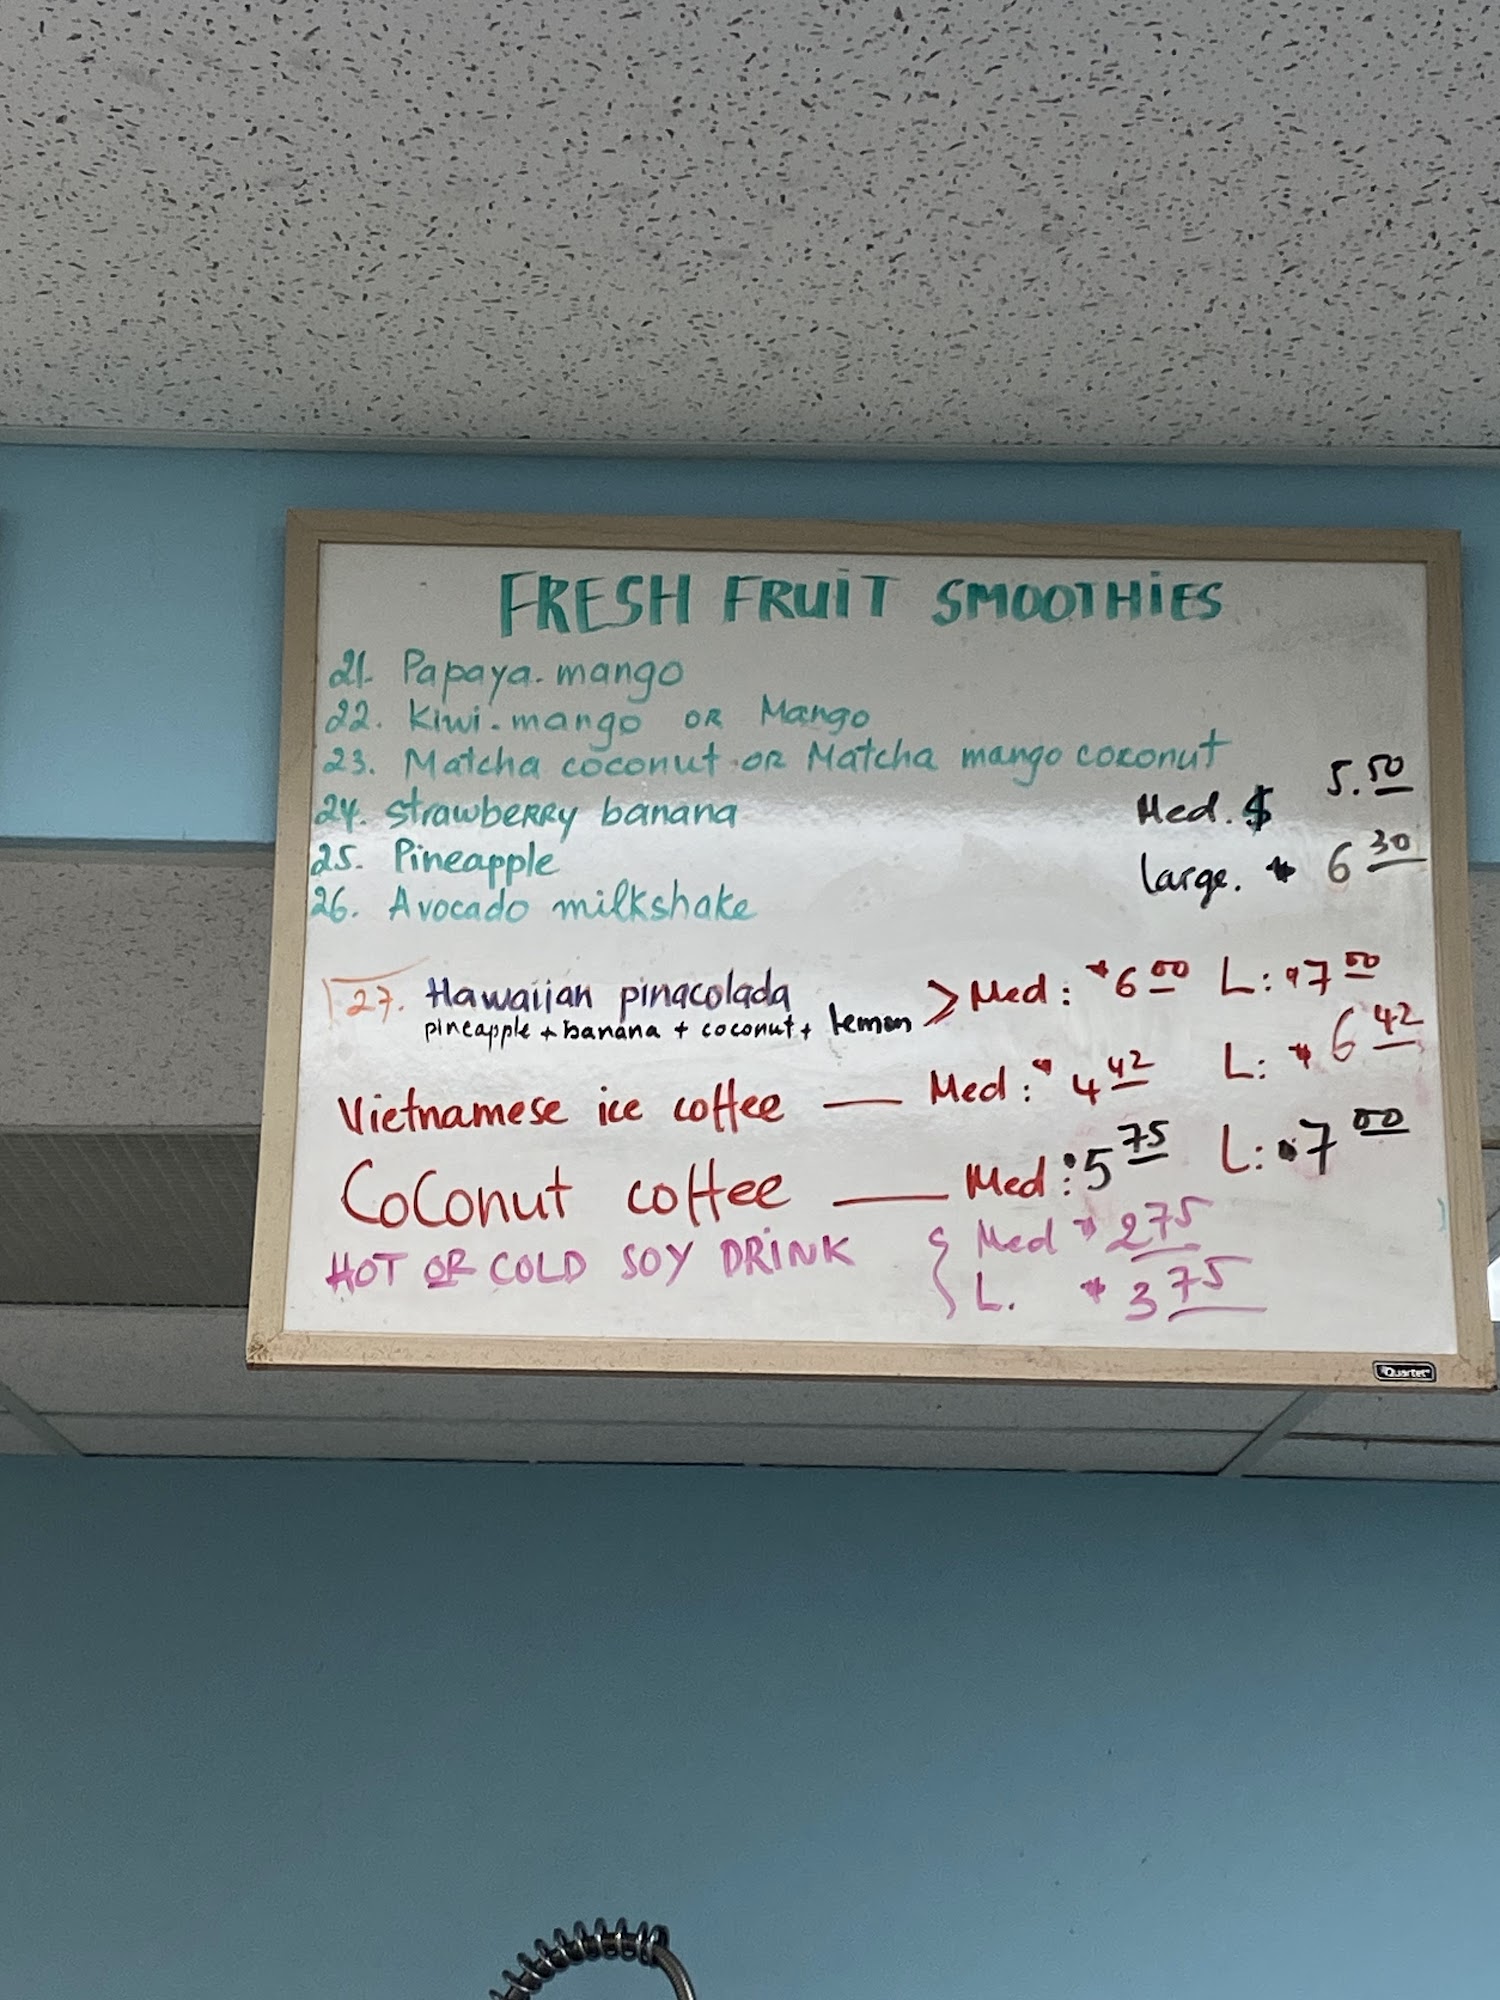 FRESH FRUIT SMOOTHIES
21. Papaya. mango
22. Kiwi. mango OR Mango
23. Matcha coconut OR Matcha mango coconut
24. Strawberry banana
Med. $ 5.50
25. Pineapple
Large. $ 6 30
26. Avocado milkshake
27. Hawaiian pinacolada > Med: $6 00 L: $7 00
pineapple + banana + coconut + lemon
Vietnamese ice coffee — Med: $4 42 L: $6 42
Coconut coffee — Med: $5 75 L: $7 00
HOT OR COLD SOY DRINK { Med $ 2 75
L. $ 3 75
Quartet